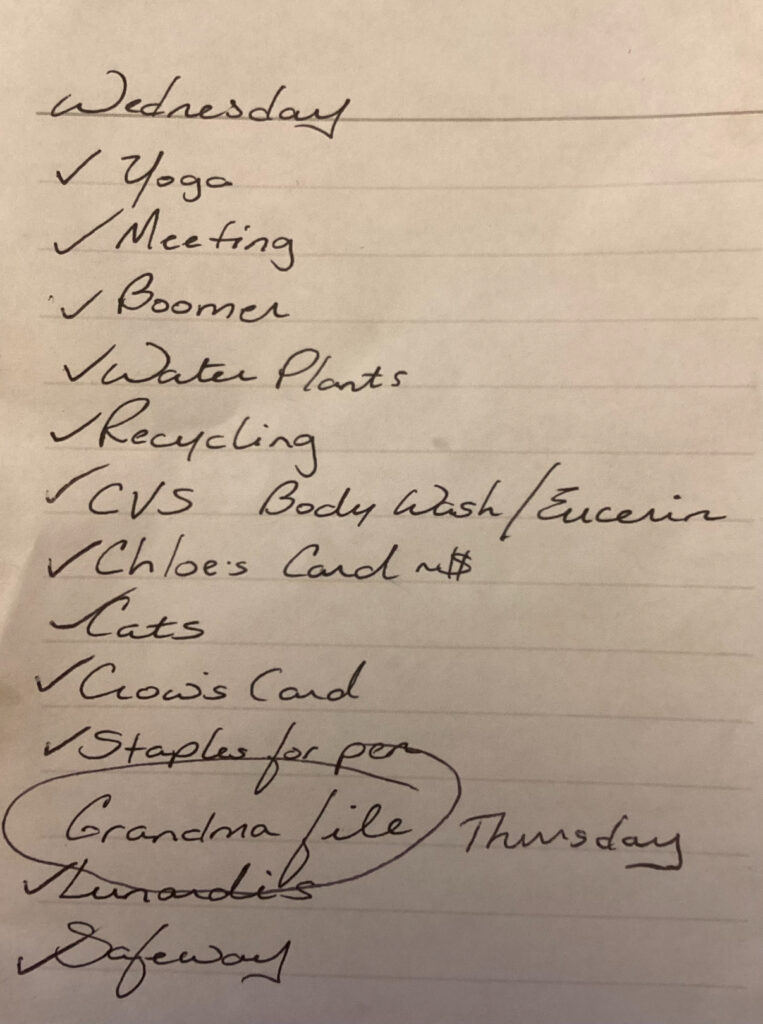 Wednesday
✓ Yoga
✓ Meeting
✓ Boomer
✓ Water Plants
✓ Recycling
✓ CVS Body Wash/Eucerin
✓ Chloe's Card ~$$
✓ Cats
✓ Crow's Card
✓ Staples for pen
Grandma file Thursday
✓ Lunardi's
✓ Safeway